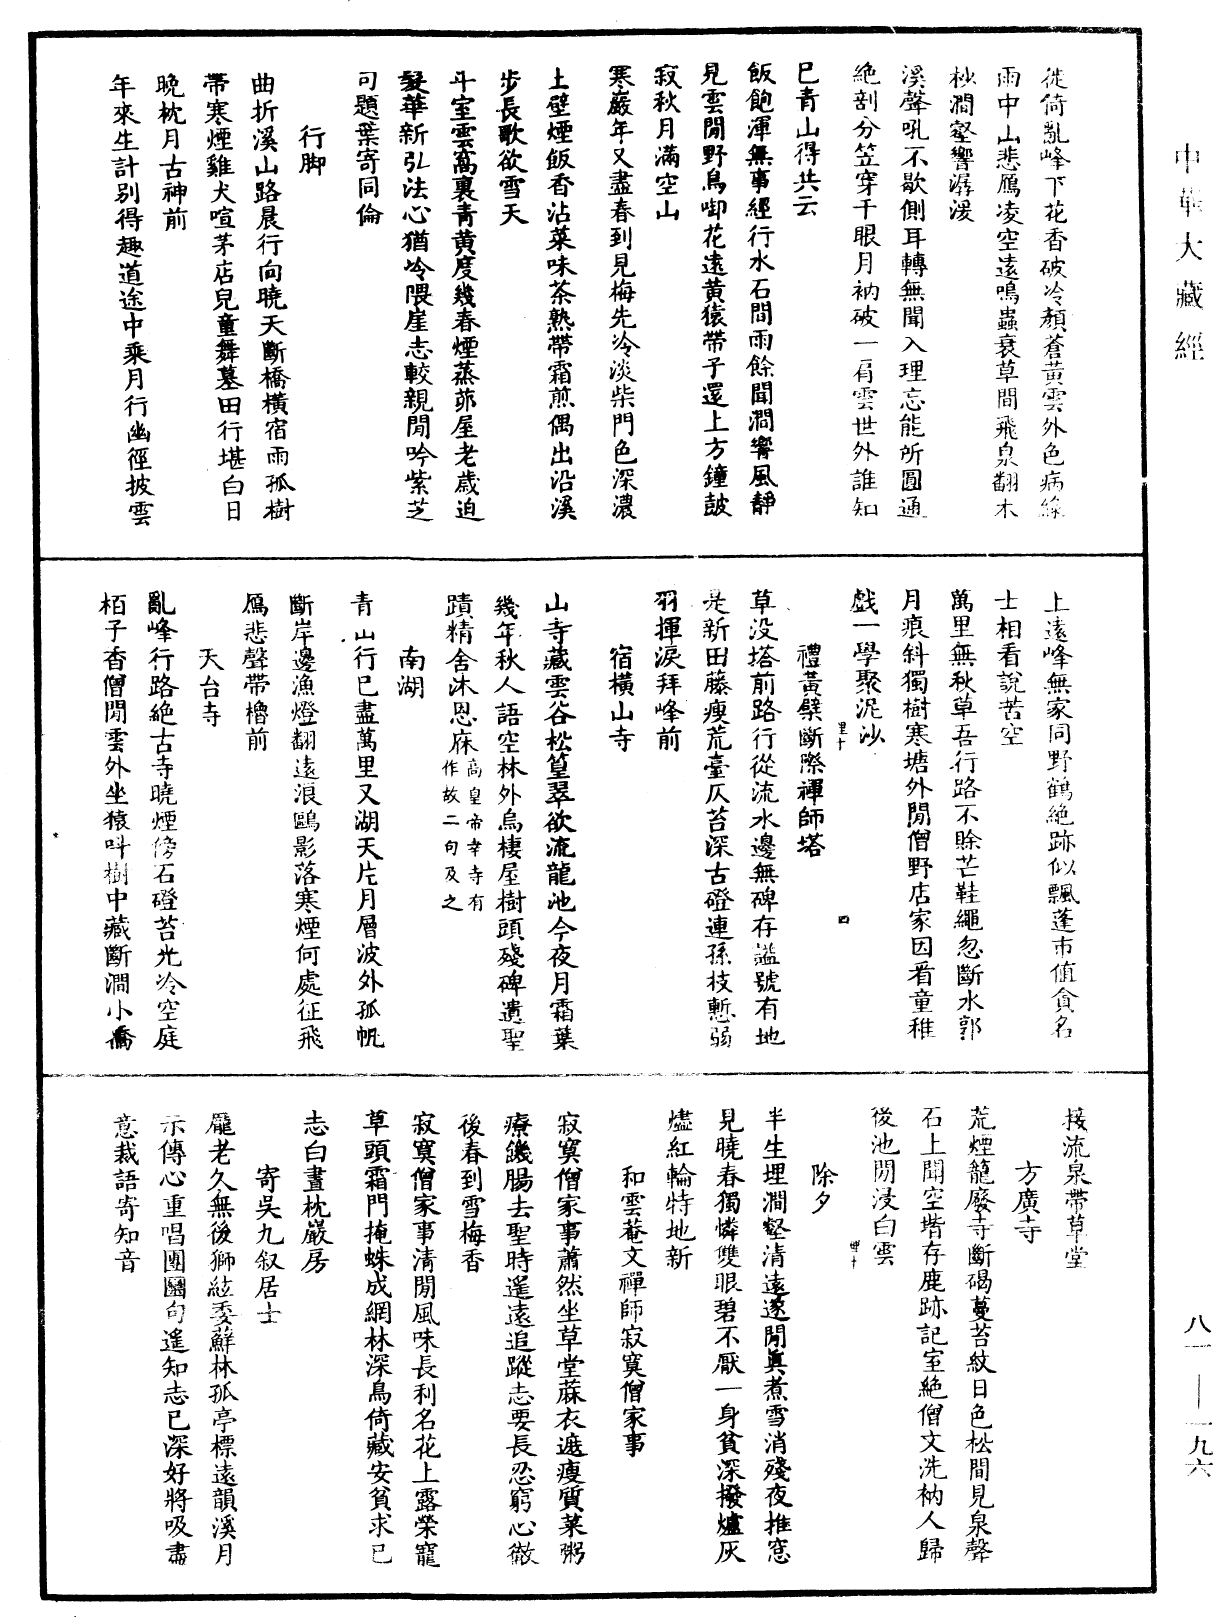 中華大藏經
徙倚亂峰下花香破冷顏蒼黃雲外色病綠
雨中山悲鴈凌空遠鳴蟲衰草間飛泉翻木
杪澗壑響潺湲
溪聲吼不歇側耳轉無聞入理忘能所圓通
絶剖分笠穿千眼月衲破一肩雲世外誰知
巳青山得共云
飯飽渾無事經行水石間雨餘聞澗響風靜
見雲閒野鳥啣花遠黃猿帶子還上方鐘皷
寂秋月滿空山
寒巖年又盡春到見梅先冷淡柴門色深濃
土壁煙飯香沾菜味茶熟帶霜煎偶出沿溪
步長歌欲雪天
斗室雲窩裏青黃度幾春煙蒸茆屋老歲迫
髮華新弘法心猶冷隈崖志較親閒吟紫芝
可題葉寄同倫
行脚
曲折溪山路晨行向曉天斷橋橫宿雨孤樹
帶寒煙雞犬喧茅店兒童舞墓田行堪白日
晚枕月古神前
年來生計别得趣道途中乘月行幽徑披雲
上遠峰無家同野鶴絶跡似飄蓬市値貪名
士相看説苦空
萬里無秋草吾行路不賒芒鞋繩忽斷水郭
月痕斜獨樹寒塘外閒僧野店家因看童稚
戲一學聚泥沙
禮黃檗斷際禪師塔
草没塔前路行從流水邊無碑存謚號有地
是新田藤瘦荒臺仄苔深古磴連孫枝慙弱
羽揮淚拜峰前
宿橫山寺
山寺藏雲谷松篁翠欲流龍池今夜月霜葉
幾年秋人語空林外烏棲屋樹頭殘碑遺聖
蹟精舍沐恩庥高皇帝幸寺有作故二句及之
南湖
青山行巳盡萬里又湖天片月層波外孤帆
斷岸邊漁燈翻遠浪鷗影落寒煙何處征飛
鴈悲聲帶櫓前
天台寺
亂峰行路絶古寺曉煙傍石磴苔光冷空庭
栢子香僧閒雲外坐猿呌樹中藏斷澗小橋
接流泉帶草堂
方廣寺
荒煙籠廢寺斷碣蔓苔紋日色松間見泉聲
石上聞空堦存鹿跡記室絶僧文洗衲人歸
後池閒浸白雲
除夕
半生埋澗壑清遠遂閒眞煮雪消殘夜推窓
見曉春獨憐雙眼碧不厭一身貧深撥爐灰
燼紅輪特地新
和雲菴文禪師寂寞僧家事
寂寞僧家事蕭然坐草堂蔴衣遮瘦質菜粥
療饑腸去聖時遙遠追蹤志要長忍窮心徹
後春到雪梅香
寂寞僧家事清閒風味長利名花上露榮寵
草頭霜門掩蛛成網林深鳥倚藏安貧求巳
志白晝枕巖房
寄吳九叙居士
龐老久無後獅絃委蘚林孤亭標遠韻溪月
示傳心重唱團圞句遙知志已深好將吸盡
意裁語寄知音
八一—一九六